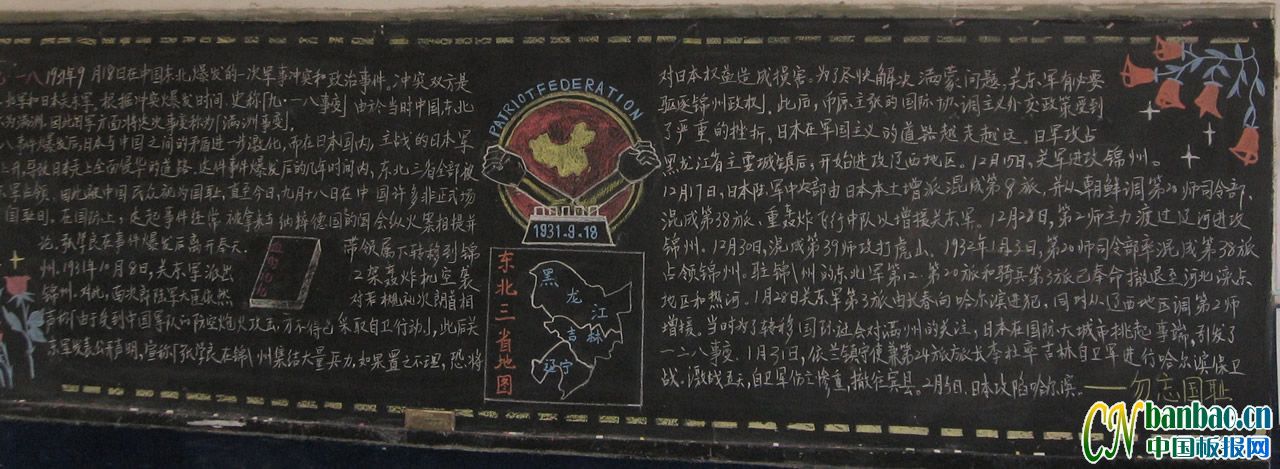 八1931年9月18日在中国东北爆发的一次军事冲突和政治事件。冲突双方是
北军和日本关东军,根据冲突爆发时间,史称「九·一八事变」由於当时中国东北
为满洲,因此日军方面将这次事变称为「满洲事变」。
八事件爆发后,日本与中国之间的矛盾进一步激化,而在日本国内,主战的日本军
上升,导致日本走上全面侵华的道路。这件事件爆发后的几年时间内,东北三省全部被
军占领。因此被中国民众视为国耻,直至今日,九月十八日在中国许多非正式场
国耻日。在国际上,这起事件经常被拿来与纳粹德国的国会纵火案相提并
论。张学良在事件爆发后离开奉天,带领属下转移到锦
州。1931年10月8日,关东军派出12架轰炸机空袭
锦州。对此,南次郎陆军大臣依然对若槻礼次郎首相
声称「由于受到中国军队的防空炮火攻击,才不得已采取自卫行动」,此后关
东军发表公开声明,宣称「张学良在锦州集结大量兵力,如果置之不理,恐将
PATRIOTFEDERATION
1931.9.18
东北三省地图
黑龙江
吉林
辽宁
对日本权益造成损害。为了尽快解决满蒙问题,关东军有必要
驱逐锦州政权」。此后,币原主张的国际协调主义外交政策受到
了严重的挫折,日本在军国主义的道路越走越远。日军攻占
黑龙江省主要城镇后,开始进攻辽西地区。12月15日,关军进攻锦州。
12月17日,日本陆军中央部由日本本土增派混成第8旅,并从朝鲜调第20师司令部、
混成第38旅、重轰炸飞行中队以增援关东军。12月28日,第2师主力渡过辽河进攻
锦州。12月30日,混成第39师攻打虎山。1932年1月3日,第20师司令部率混成第38旅
占领锦州。驻锦州的东北军第12、第20旅和骑兵第3旅已奉命撤退至河北滦东
地区和热河。1月28日关东军第3旅由长春向哈尔滨进犯,同时从辽西地区调第2师
增援。当时为了转移国际社会对满州的关注,日本在国际大城市挑起事端,引发了
一二八事变。1月31日,依兰镇守使兼第24旅旅长李杜率吉林自卫军进行哈尔滨保卫
战。激战五天,自卫军伤亡惨重,撤往宾县。2月5日,日本攻陷哈尔滨。
——勿忘国耻
CN banbao.cn
中国板报网